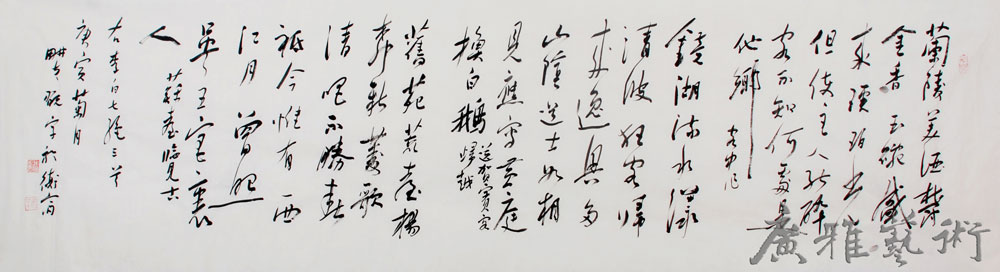 蘭陵美酒鬱
金香玉碗盛
來琥珀光
但使主人能醉
客不知何處是
他鄉
客中作
鏡湖流水漾
清波狂客歸
舟逸興多
山陰道士如相
見應寫黃庭
換白鵝
送賀賓客
歸越
舊苑荒臺楊
柳新菱歌
清唱不勝春
祇今惟有西
江月曾照
吳王宮裏
人
蘇臺覽古
右李白七絕三首
庚寅菊月
廣雅藝術